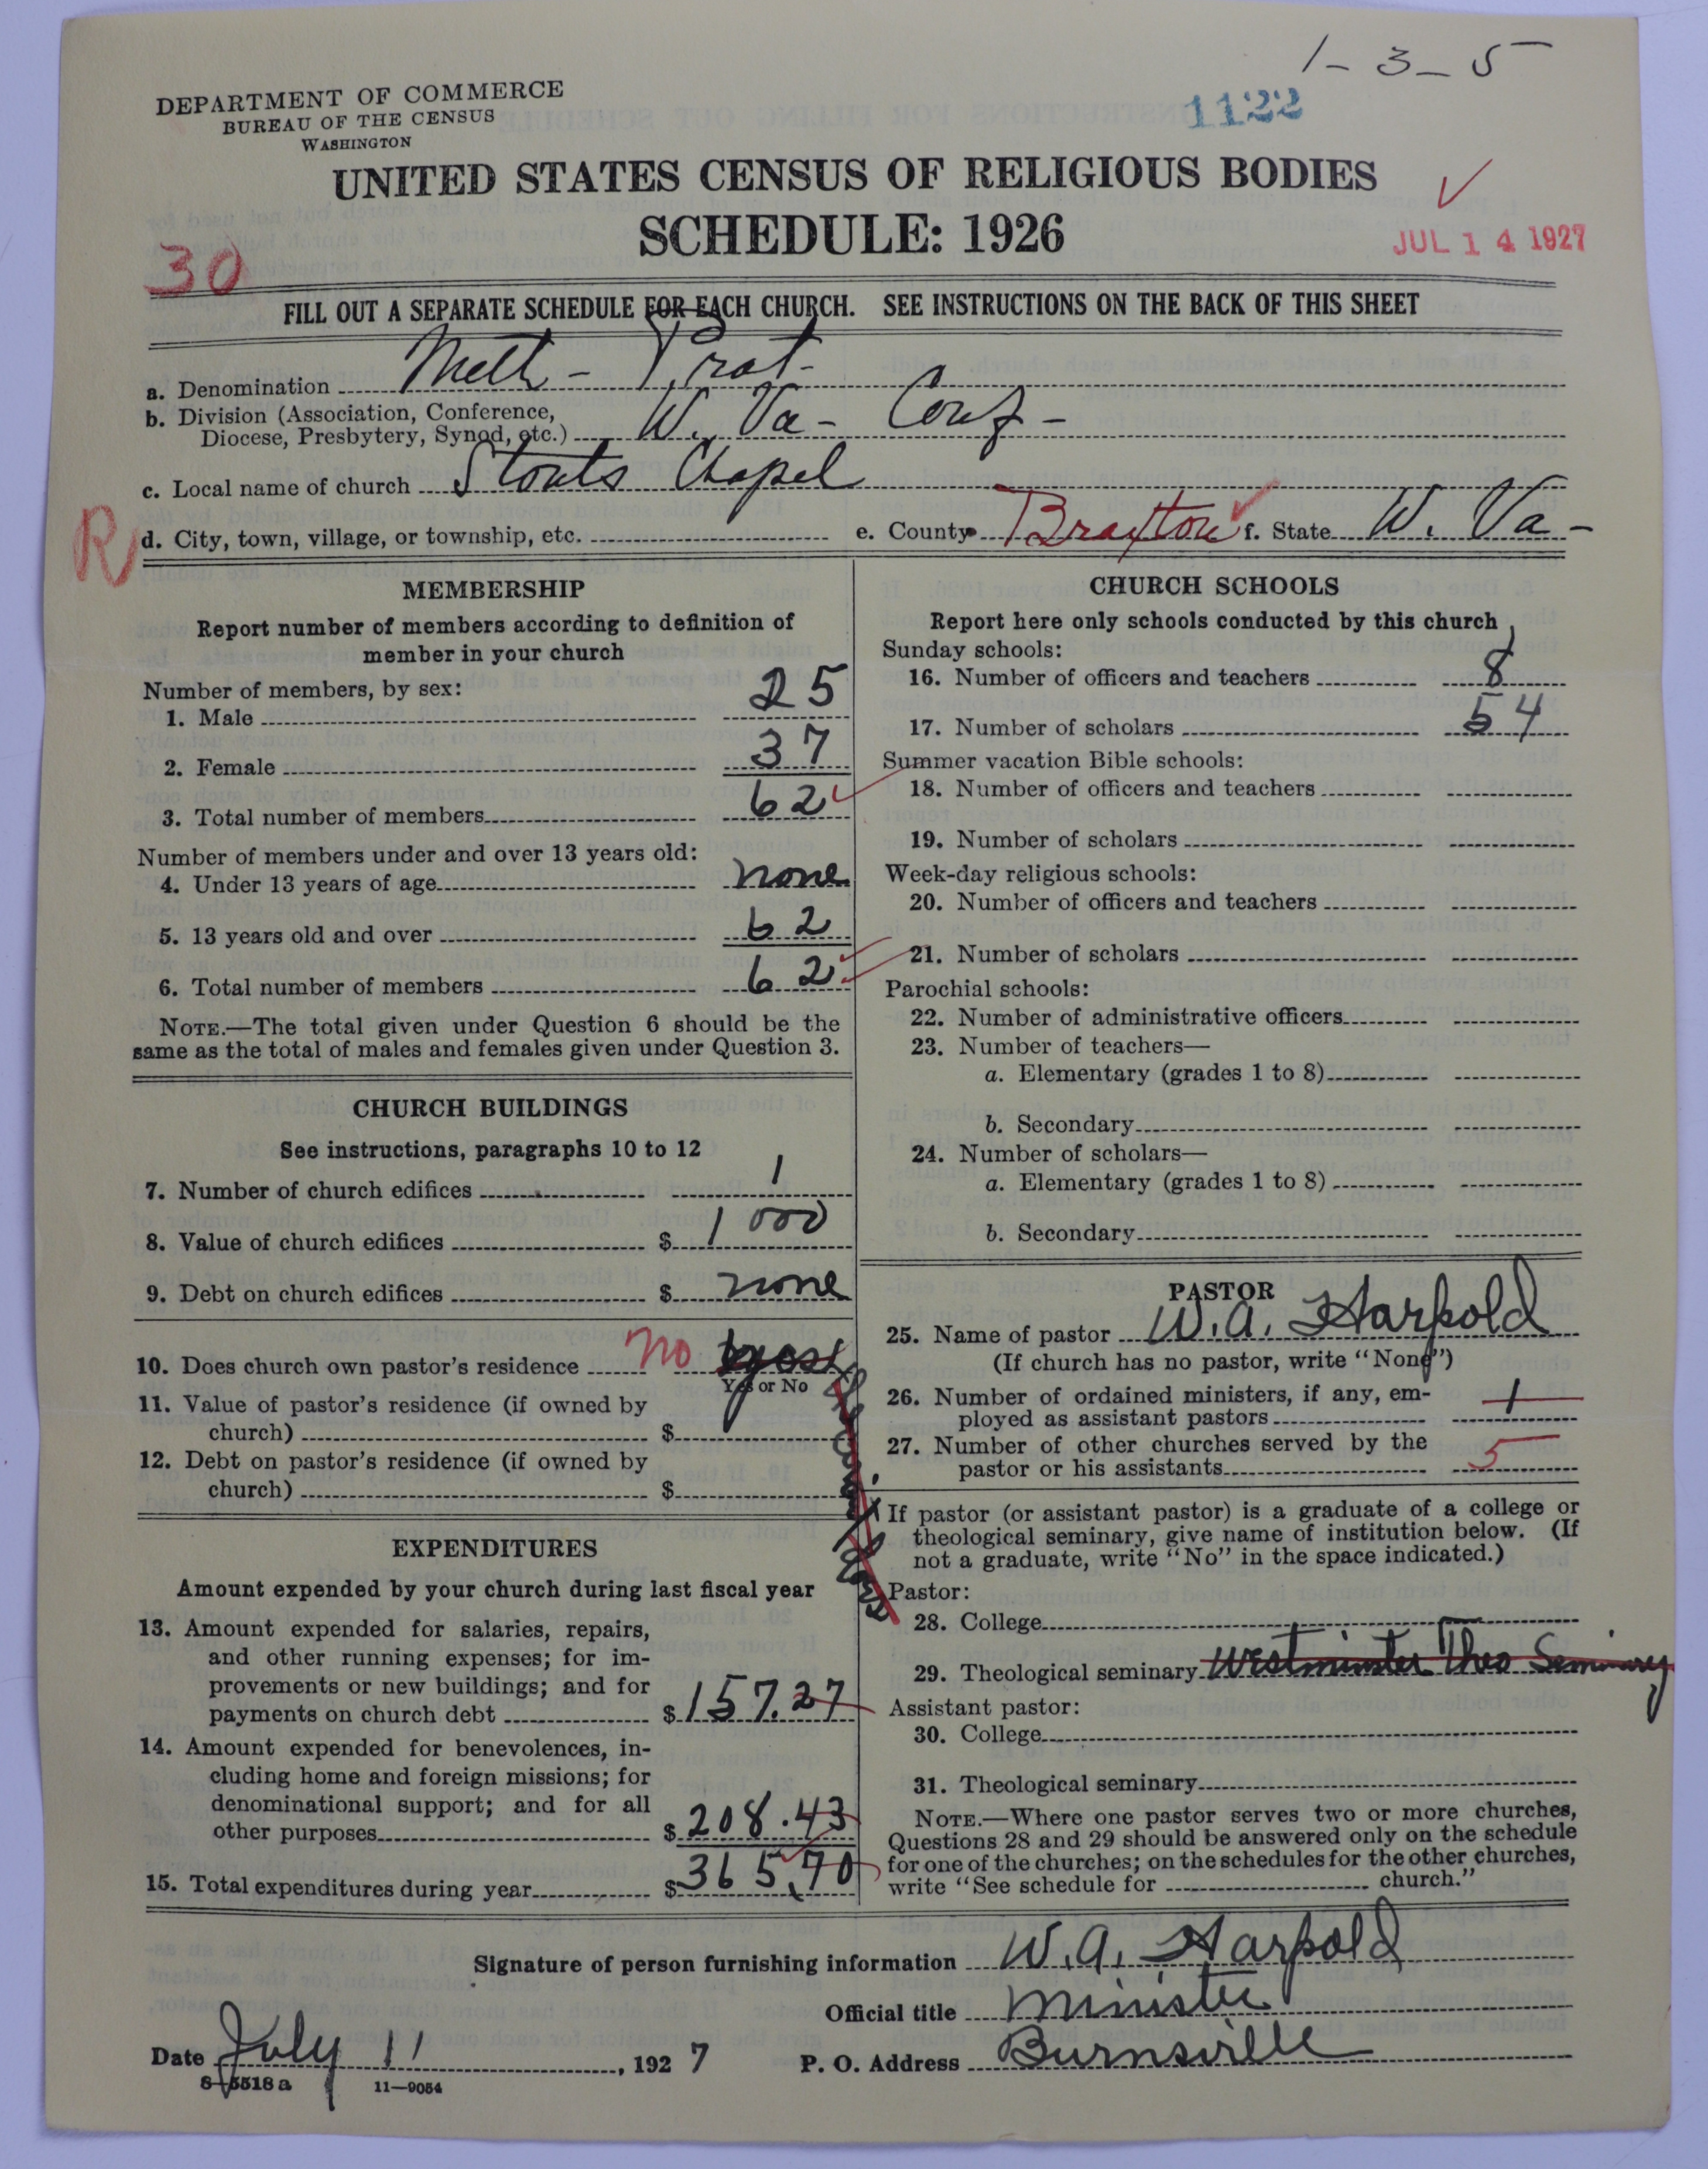 1 - 3 - 5
DEPARTMENT OF COMMERCE
BUREAU OF THE CENSUS
WASHINGTON
1122
UNITED STATES CENSUS OF RELIGIOUS BODIES
SCHEDULE: 1926
JUL 14 1927
30
FILL OUT A SEPARATE SCHEDULE FOR EACH CHURCH. SEE INSTRUCTIONS ON THE BACK OF THIS SHEET
a. Denomination Meth - Prot -
b. Division (Association, Conference,
Diocese, Presbytery, Synod, etc.) W. Va - Conf -
c. Local name of church Stouts Chapel
R d. City, town, village, or township, etc. e. County Braxton f. State W. Va -
MEMBERSHIP
Report number of members according to definition of
member in your church
Number of members, by sex:
1. Male 25
2. Female 37
3. Total number of members 62
Number of members under and over 13 years old:
4. Under 13 years of age none
5. 13 years old and over 62
6. Total number of members 62
NOTE.—The total given under Question 6 should be the
same as the total of males and females given under Question 3.
CHURCH BUILDINGS
See instructions, paragraphs 10 to 12
7. Number of church edifices 1
8. Value of church edifices $ 1000
9. Debt on church edifices $ none
10. Does church own pastor's residence No yes
Yes or No
11. Value of pastor's residence (if owned by
church) $
12. Debt on pastor's residence (if owned by
church) $
EXPENDITURES
Amount expended by your church during last fiscal year
13. Amount expended for salaries, repairs,
and other running expenses; for im-
provements or new buildings; and for
payments on church debt $ 157.27
14. Amount expended for benevolences, in-
cluding home and foreign missions; for
denominational support; and for all
other purposes $ 208.43
15. Total expenditures during year $ 365.70
CHURCH SCHOOLS
Report here only schools conducted by this church
Sunday schools:
16. Number of officers and teachers 8
17. Number of scholars 54
Summer vacation Bible schools:
18. Number of officers and teachers
19. Number of scholars
Week-day religious schools:
20. Number of officers and teachers
21. Number of scholars
Parochial schools:
22. Number of administrative officers
23. Number of teachers—
a. Elementary (grades 1 to 8)
b. Secondary
24. Number of scholars—
a. Elementary (grades 1 to 8)
b. Secondary
PASTOR
25. Name of pastor W. A. Harpold
(If church has no pastor, write "None")
26. Number of ordained ministers, if any, em-
ployed as assistant pastors 1
27. Number of other churches served by the
pastor or his assistants 5
If pastor (or assistant pastor) is a graduate of a college or
theological seminary, give name of institution below. (If
not a graduate, write "No" in the space indicated.)
Pastor:
28. College
29. Theological seminary Westminster Theo Seminary
Assistant pastor:
30. College
31. Theological seminary
NOTE.—Where one pastor serves two or more churches,
Questions 28 and 29 should be answered only on the schedule
for one of the churches; on the schedules for the other churches,
write "See schedule for church."
Signature of person furnishing information W. A. Harpold
Official title Minister
Date July 11, 1927 P. O. Address Burnsville
8-5518 a 11—9054